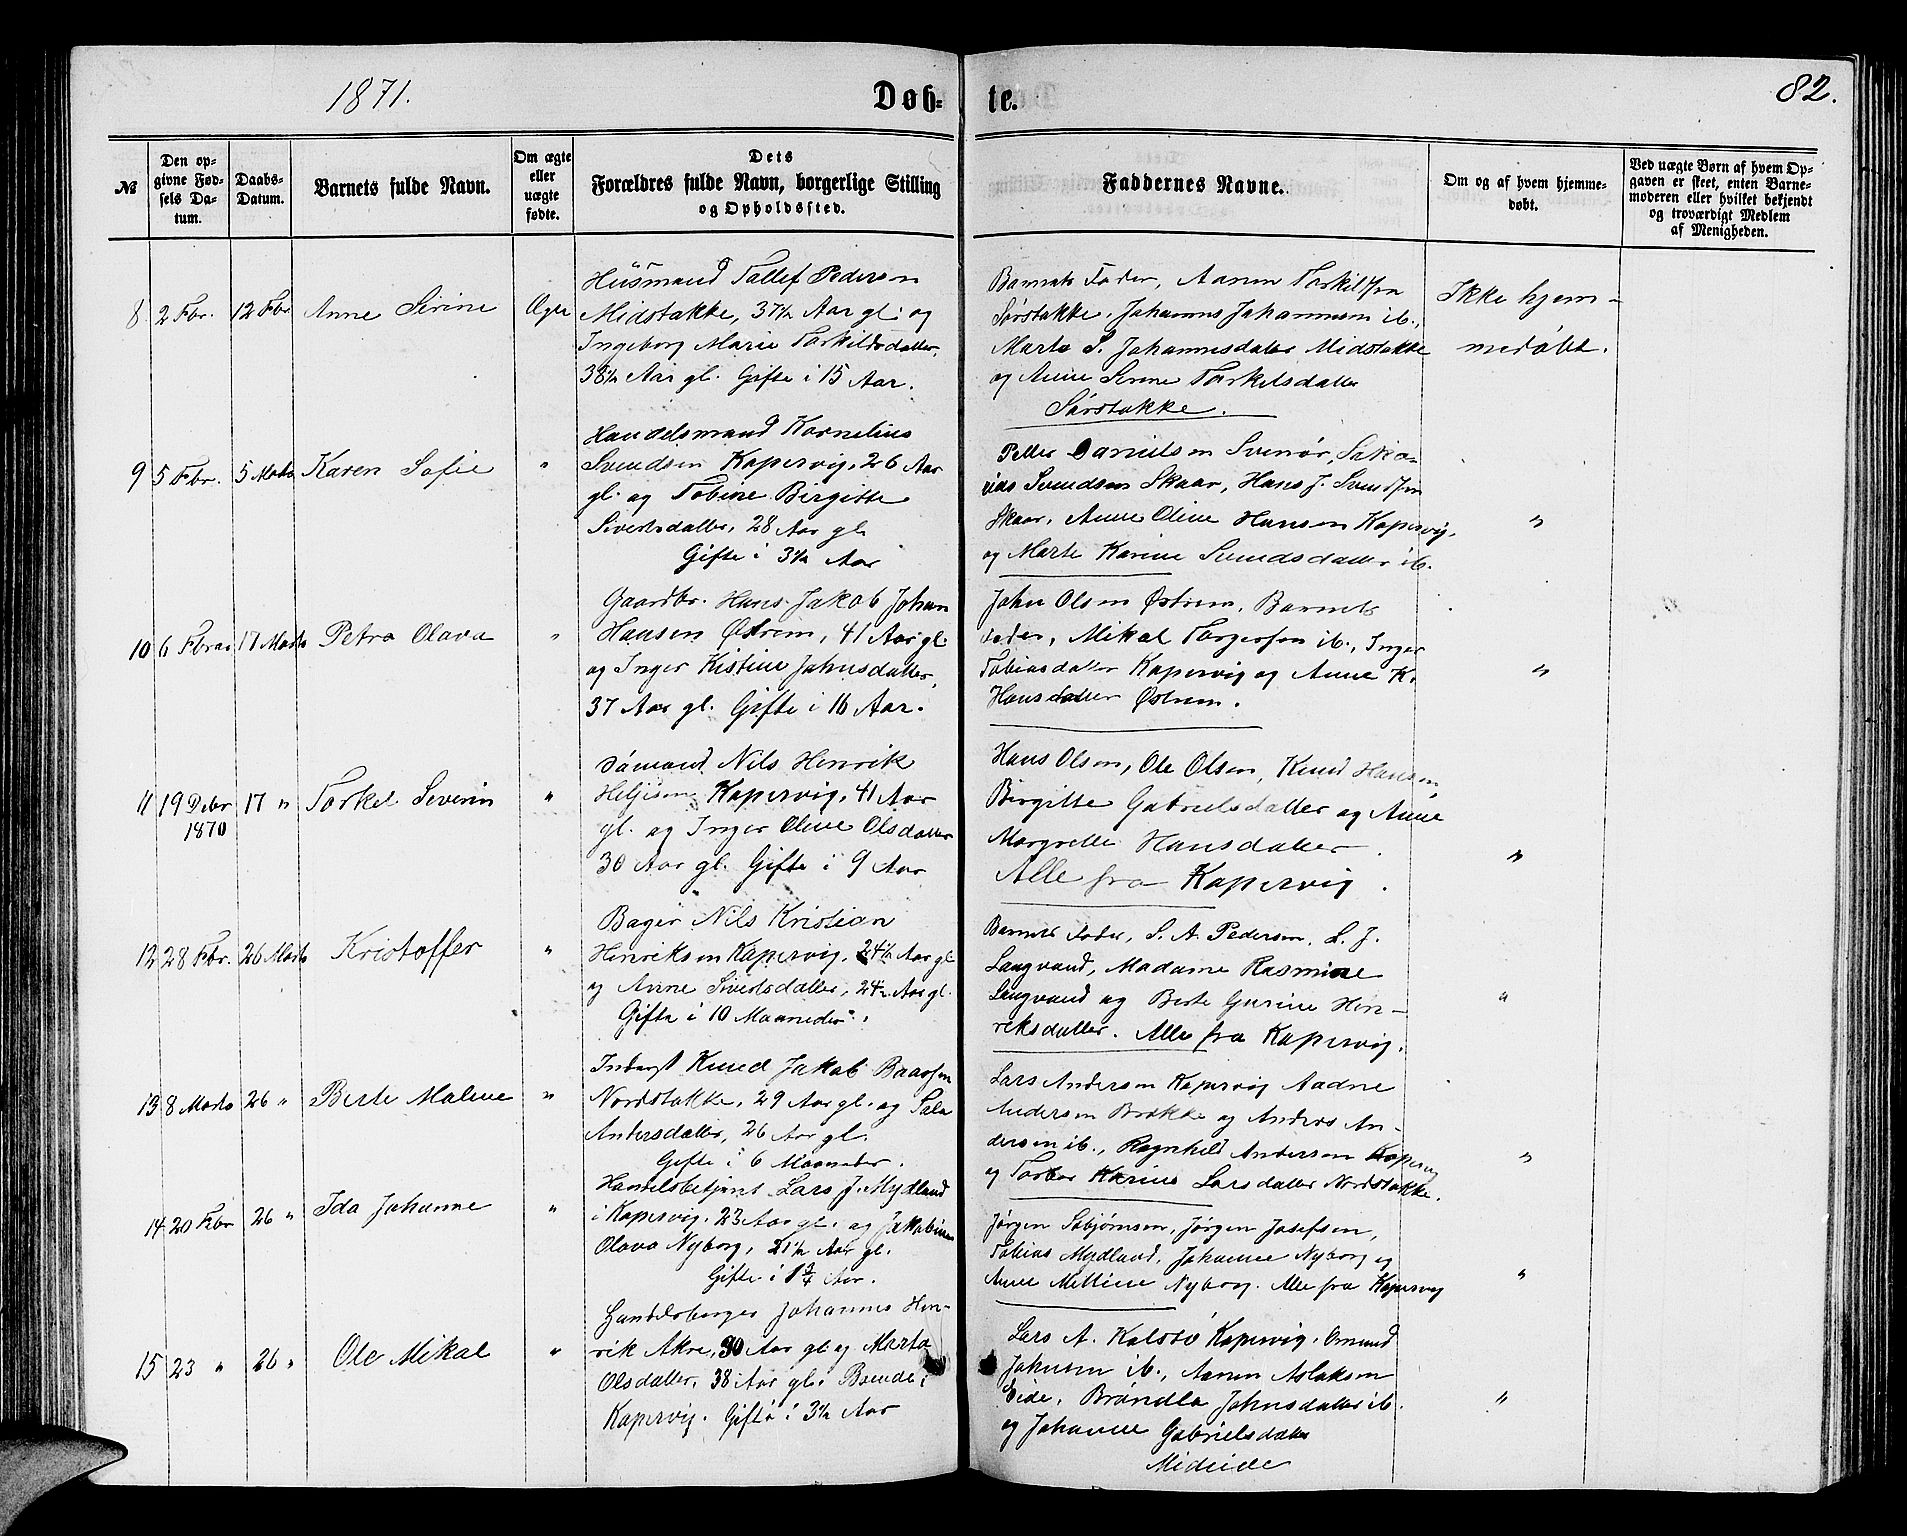 1871.
Døb-
te.
82.
№
Den op-
givne Fød-
sels Da-
tum.
Daabs-
Datum.
Barnets fulde Navn.
Om ægte
eller
uægte
fødte.
Dets
Forældres fulde Navn, borgerlige Stilling
og Opholdssted.
Faddernes Navne.
Om og af hvem hjemme-
døbt.
Ved uægte Børn af hvem Op-
gaven er skeet, enten Barne-
moderen eller hvilket bekjendt
og troværdigt Medlem
af Menigheden.
8 2 Fbr. 12 Fbr Anne Serine Ægte
Husmand Tallef Pedersen
Midstokke, 37½ Aar gl. og
Ingeborg Marie Torkildsdatter,
38½ Aar gl. Gifte i 15 Aar.
Barnets Fader, Aanen Torkilsen
Sørstokke, Johannes Johannesen ib.,
Marta S. Johannesdatter Midstokke
og Anne Serine Torkelsdatter
Sørstokke.
Ikke hjem-
medøbt.
9 5 Fbr. 5 Marts Karen Sofie "
Handelsmand Kornelius
Svendsen Kopervig, 26 Aar
gl. og Tobine Birgitte
Sivertsdatter, 28 Aar gl.
Gifte i 3½ Aar
Petter Danielsen Svenør, Saka-
rias Svendsen Skaar, Hans J. Svendsen
Skaar, Anne Oline Hansen Kopervig,
og Marte Karine Svendsdatter ib.
"
10 6 Fbrar 17 Marts Petra Olava "
Gaardbr. Hans Jakob Johan
Hansen Østrem, 41 Aar gl.
og Inger Kistine Johnsdatter,
37 Aar gl. Gifte i 16 Aar.
John Olsen Østrem, Barnets
Fader, Mikal Torgersen ib., Inger
Tobiasdatter Kopervig og Anne K.
Hansdatter Østrem.
"
11 19 Debr 17 " Torkel Severin "
1870
Sømand Nils Henrik
Kopervig, 41 Aar
gl. og Inger Oline Olsdatter
30 Aar gl. Gifte i 9 Aar
Hans Olsen, Ole Olsen, Knud Hansen,
Birgitte Gabrielsdatter og Anne
Margrethe Hansdatter.
Alle fra Kopervig.
"
12 28 Fbr. 26 Marts Kristoffer "
Bager Nils Kristian
Henriksen Kopervig, 24½ Aar gl
og Anne Sivertsdatter, 24½ Aar gl.
Gifte i 10 Maaneder.
Barnets Fader, S. A. Pedersen, L. J.
Langvand, Madame Rasmine
Langvand og Berte Gurine Hen-
reksdatter. Alle fra Kopervig.
"
13 8 Marts 26 " Berte Malene "
Inderst Knud Jakob Baardsen
Nordstokke, 29 Aar gl. og
Andersdatter, 26 Aar gl.
Gifte i 6 Maaneder.
Lars Andersen Kopervig Aadne
Andersen Brekke og Anders An-
dersen ib., Ragnhild Andersen Kopervig
og Torbor Karine Larsdatter Nordstokke.
"
14 20 Fbr 26 " Ida Johanne "
Handelsbetjent Lars J. Mydland
i Kopervig, 23 Aar gl. og Jakobine
Olava Nyborg, 21½ Aar gl.
Gifte i 1¾ Aar.
Jørgen Sebjørnsen, Jørgen Josefsen,
Tobias Mydland, Johanne Nyborg og
Anne Mettine Nyborg. Alle fra Kopervig
"
15 23 " 26 " Ole Mikal "
Handelsborger Johannes Hen-
rik Akre, 30 Aar gl. og Marta
Olsdatter, 38 Aar gl. Boende i
Kopervig. Gifte i 3½ Aar
Lars A. Kalstø Kopervig, Omund
Johnsen ib., Aanen Aslaksen
Eide, Brøndla Johnsdatter ib.
og Johanne Gabrielsdatter
Mideide
"